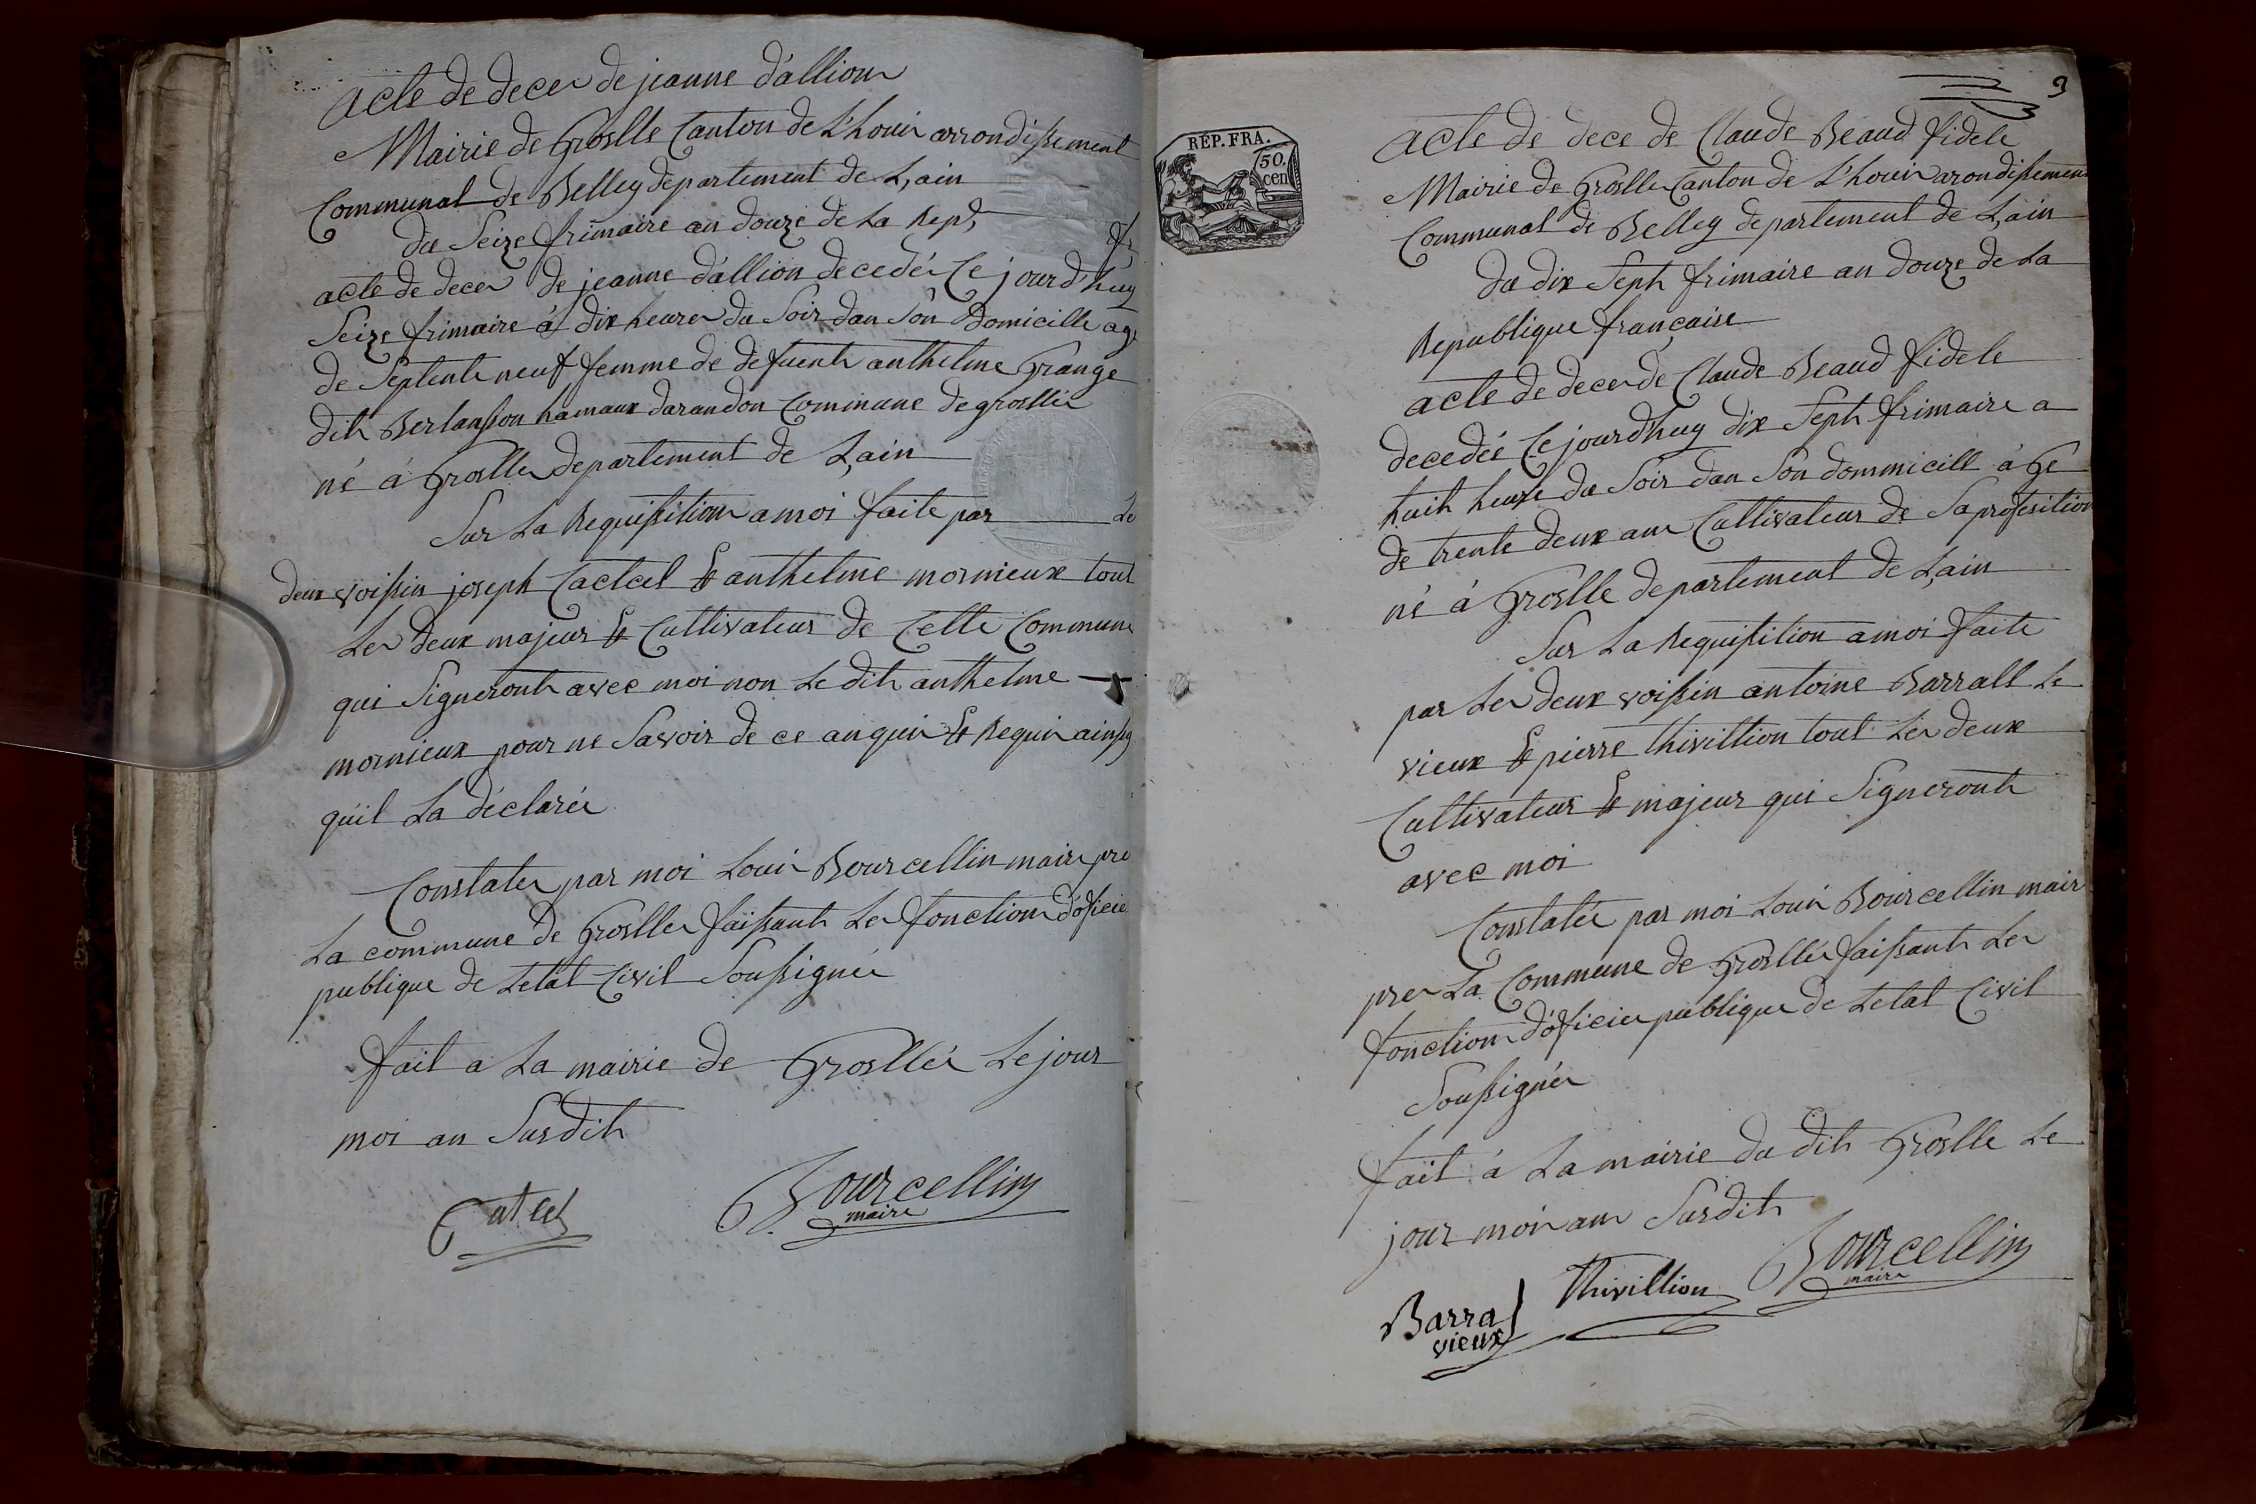 acte de deces de jeanne d'allion
Mairie de Groslle Canton de L'houis arrondissement
Communal de Belley departement de L'ain
du Seize frimaire an douze de la Rep,
acte de deces de jeanne d'allion decedéé Ce jourd'huy
Seize frimaire á dix heures du Soir dans Son Domicille age
de Septente neuf femme de defuent anthelme Grange
dit Berlansion hamaux darandon Commune de grosllée
né á Groslle departement de L'ain
Sur La Requisition a moi faite par Les
deux voissin joseph Catcel Et anthelme mornieux tout
Les deux majeur Et Cultivateur de Cette Commune
qui Signeront avec moi non Le dit anthelme
mornieux pour ne Savoir de ce anquis Et Requis ainsy
quil La déclarée
Constater par moi Louis Bourcellin maire pre
La commune de Groslle faissant Les fonction d'oficie
publique de Letat Civil Soussignée
fait a La mairie de Grosllée Le jour
moi an Susdit
Catcel
Bourcellin
maire
3
REP. FRA.
50.
cen
acte de dece de Claude Beaud fidele
Mairie de Groslle Canton de L'houis arondissement
Communal de Belley departement de L'ain
du dix Sept frimaire an douze de La
Republique française
acte de deces de Claude Beaud fidele
decedéé Ce jourdhuy dix Sept frimaire a
huit heure du Soir dan Son dommicill á Ge
de trente deux ans Cultivateur de Sa profesition
né á Groslle departement de L'ain
Sur La Requisition a moi faite
par Les deux voissin antoine Barrall Le
vieux Et pierre thivillion tout Les deux
Cultivateur Et majeur qui Signeront
avec moi
Constatée par moi Louis Bourcellin mair
pres La Commune de Grosllée faissant Les
fonction d'oficier publique de Letat Civil
Soussignée
fait á La mairie du dit Groslle Le
jour mois ans Susdit
Barral
vieux
Thivillion
Bourcellin
maire